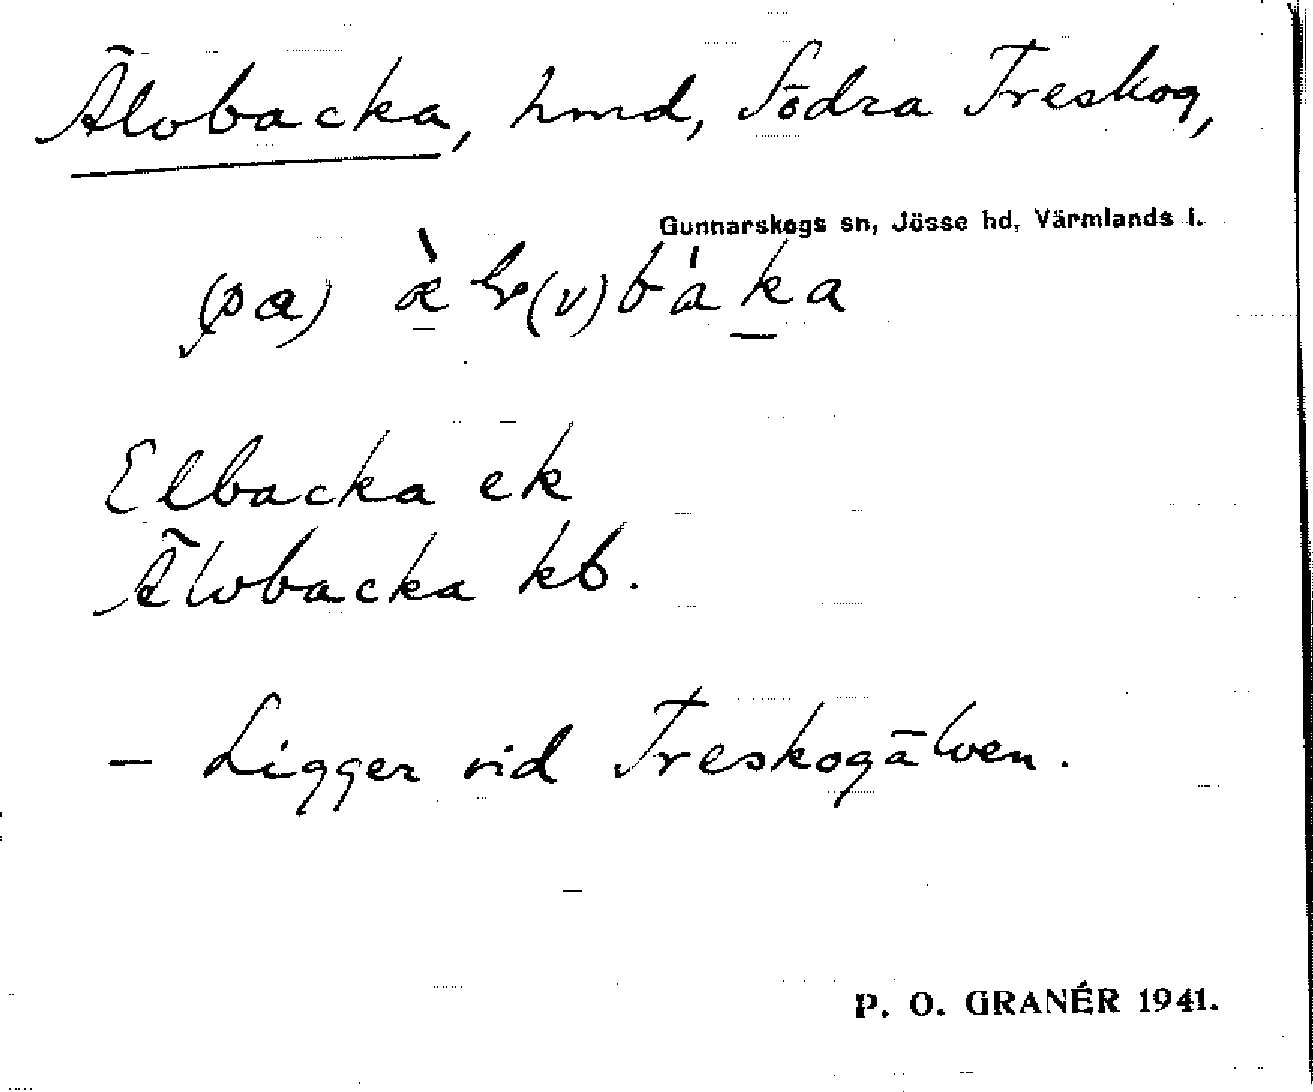 Älvbacka, hmd, Södra Treskog,
Gunnarskogs sn, Jösse hd, Värmlands l.
Elbacka ek
Älvbacka kb.
– Ligger vid Treskogälven.
P. O. GRANÉR 1941.